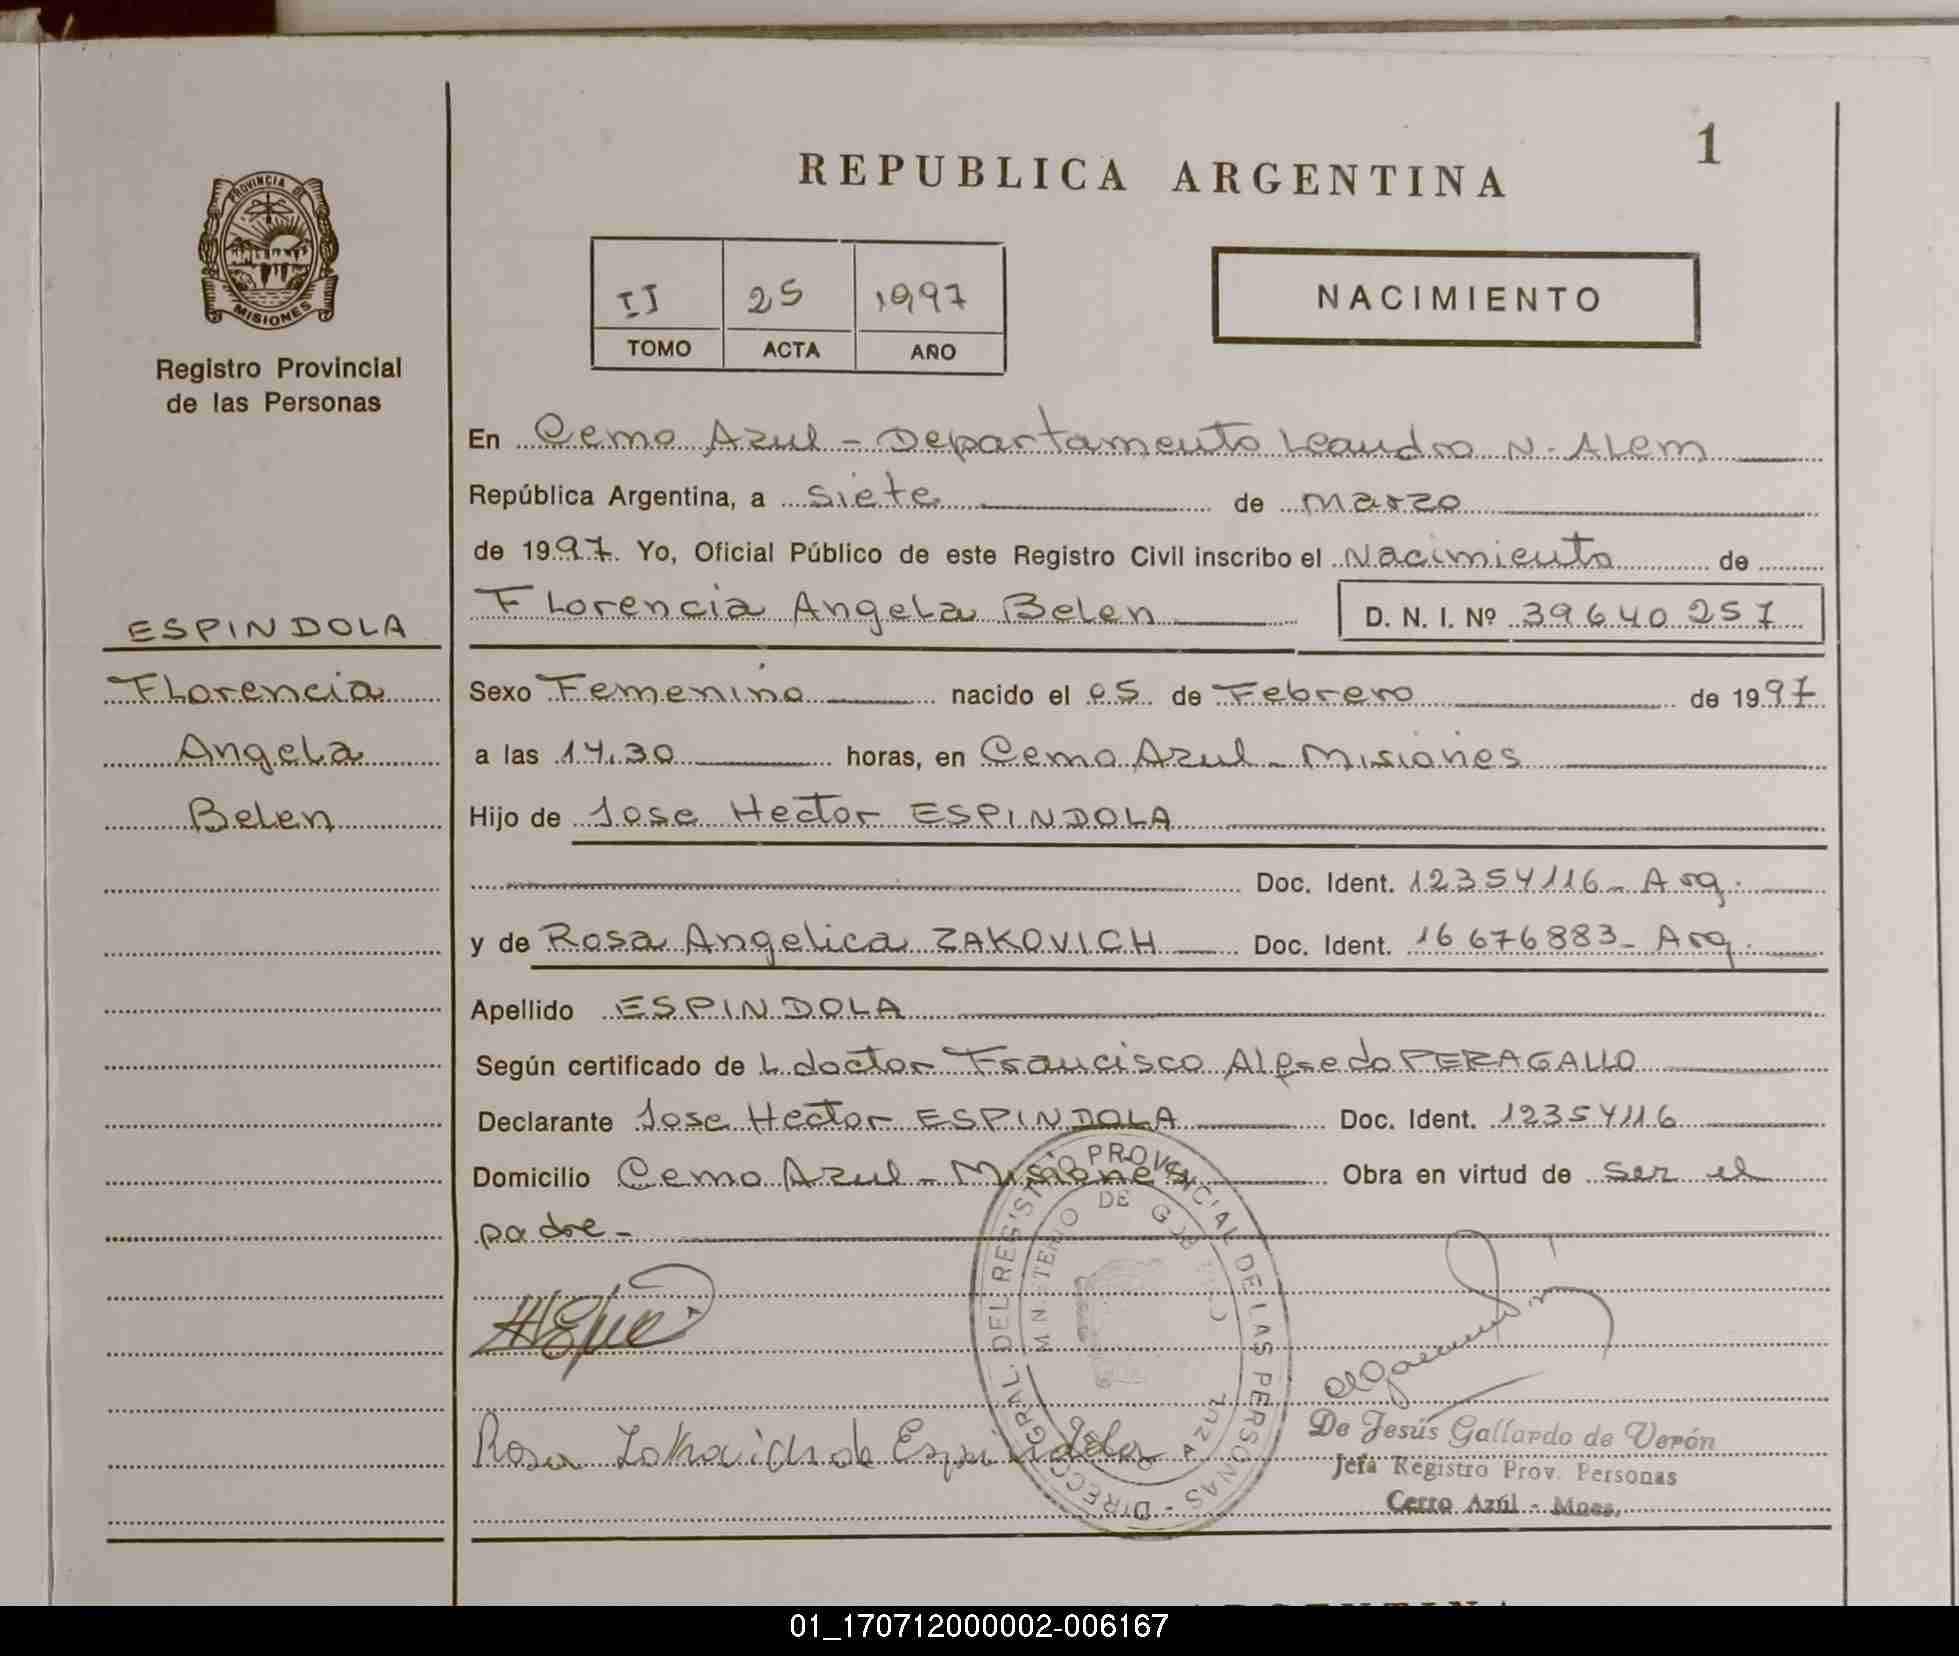 1
REPUBLICA ARGENTINA
PROVINCIA DE
MISIONES
Registro Provincial
de las Personas
II 25 1997
TOMO ACTA AÑO
NACIMIENTO
En Cerro Azul - Departamento Leandro N. Alem
República Argentina, a siete de marzo
de 1997 Yo, Oficial Público de este Registro Civil inscribo el Nacimiento de
Florencia Angela Belen D. N. I. Nº 39640257
ESPINDOLA
Florencia
Angela
Belen
Sexo Femenino nacido el 05 de Febrero de 1997
a las 14.30 horas, en Cerro Azul - Misiones
Hijo de Jose Hector ESPINDOLA
Doc. Ident. 12354116 - Arg.
y de Rosa Angelica ZAKOVICH Doc. Ident. 16676883 - Arg.
Apellido ESPINDOLA
Según certificado de L doctor Francisco Alfredo PERAGALLO
Declarante Jose Hector ESPINDOLA Doc. Ident. 12354116
Domicilio Cerro Azul - Misiones Obra en virtud de ser el
padre -
DIRECC. GRAL. DEL REGISTRO PROVINCIAL DE LAS PERSONAS
MINISTERIO DE GOBIERNO
CERRO AZUL
Rosa Zakovich de Espindola
De Jesús Gallardo de Verón
Jefa Registro Prov. Personas
Cerro Azúl - Mnes.
01_170712000002-006167